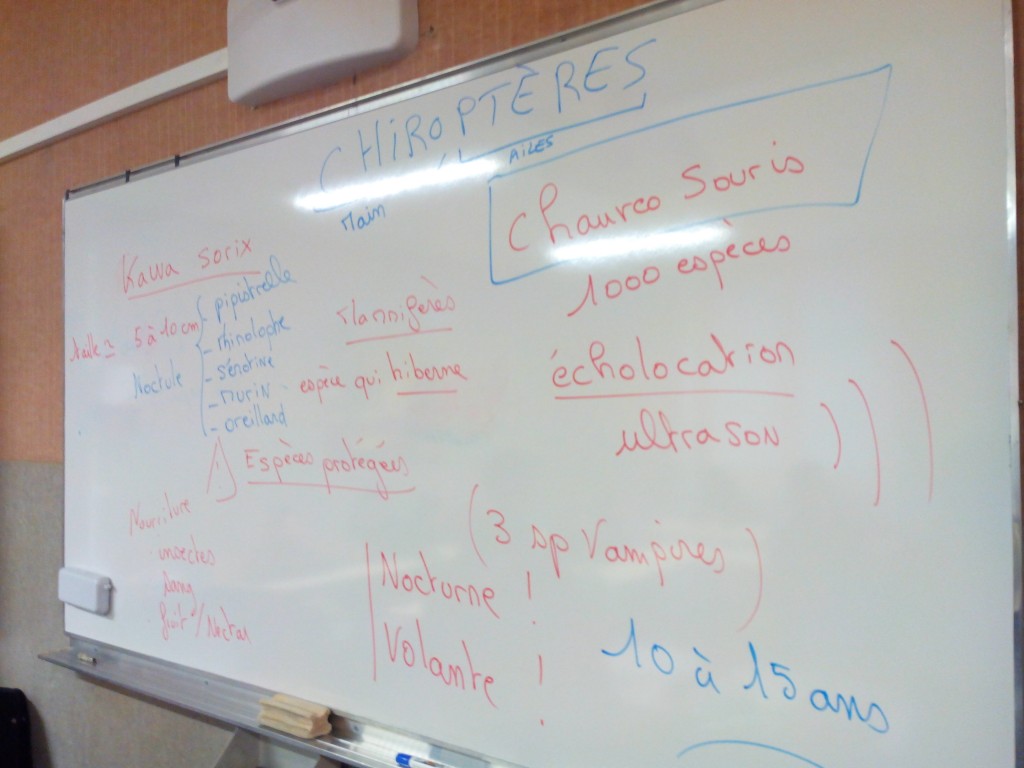 CHIROPTÈRES
Main
AILES
Chauve Souris
1000 espèces
Kawa sorix
Taille ≃ 5 à 10 cm
Noctule
- pipistrelle
- rhinolophe
- sérotine
- MURIN
- oreillard
Mammifères
espèce qui hiberne
écholocation
ultrason
Espèces protégées
Nourriture
· insectes
· sang
· fruit / Nectar
(3 sp Vampires)
Nocturne !
Volante !
10 à 15 ans